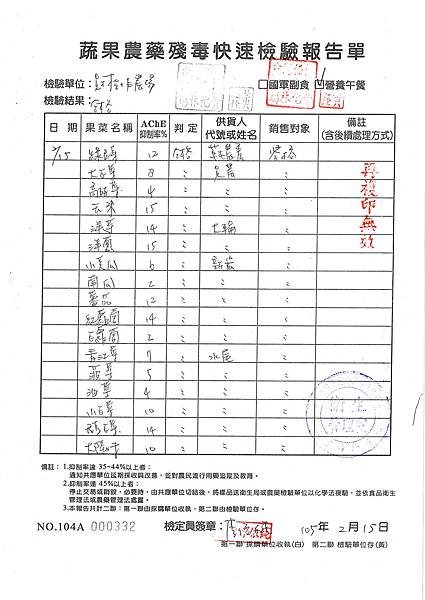 蔬果農藥殘毒快速檢驗報告單
檢驗單位：
□國軍副食 ☑營養午餐
檢驗結果：合格
日期 果菜名稱 AChE抑制率% 判定 供貨人代號或姓名 銷售對象 備註(含後續處理方式)
2/15 12 合格
8 〃 〃
高麗菜 4 〃 〃 〃
玉米 15 〃 〃 〃
洋芋 14 〃 〃
洋蔥 15 〃 〃 〃
小黃瓜 6 〃 〃
南瓜 2 〃 〃 〃
蕃茄 12 〃 〃 〃
紅蘿蔔 14 〃 〃 〃
白蘿蔔 2 〃 〃 〃
青江菜 7 〃 〃
菠菜 5 〃 〃 〃
油菜 4 〃 〃 〃
小白菜 10 〃 〃 〃
14 〃 〃 〃
10 〃 〃 〃
再複印無效
備註：1.抑制率達 35~44%以上者：
通知共應單位延期採收與改善，並對農民進行用藥追蹤及教育。
2.抑制率達 45%以上者：
停止交易或銷毀，必要時，由共應單位切結後，將樣品送衛生局或農藥檢驗單位以化學法複驗，並依食品衛生
管理法或農藥管理法處置。
3.本報告共計二聯：第一聯由採購單位收執，第二聯由檢驗單位存。
NO.104A 000332
檢定員簽章：
105年 2月15日
第一聯 採購單位收執(白) 第二聯 檢驗單位存(黃)